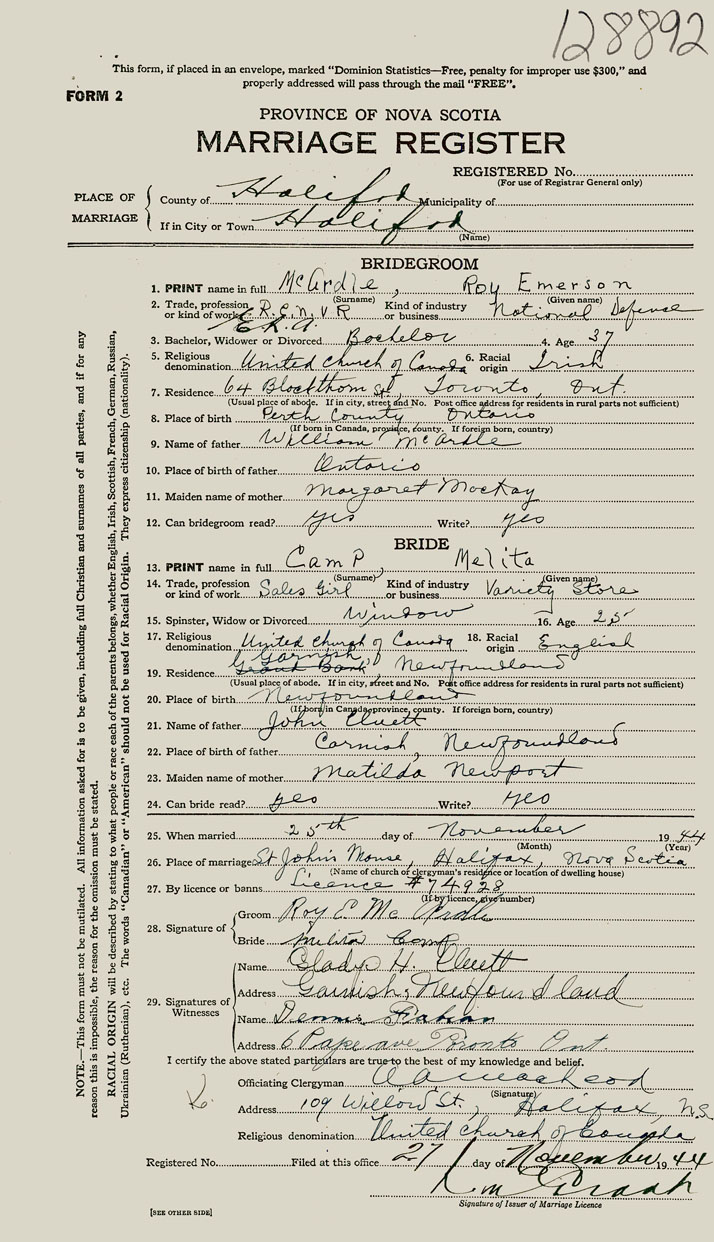 128892
This form, if placed in an envelope, marked "Dominion Statistics—Free, penalty for improper use $300," and
properly addressed will pass through the mail "FREE".
FORM 2
PROVINCE OF NOVA SCOTIA
MARRIAGE REGISTER
REGISTERED No.
(For use of Registrar General only)
PLACE OF MARRIAGE
County of Halifax Municipality of
If in City or Town Halifax
(Name)
BRIDEGROOM
1. PRINT name in full McArdle, Roy Emerson
(Surname) (Given name)
2. Trade, profession or kind of work R.C.N.V.R E.R.A. Kind of industry or business National Defense
3. Bachelor, Widower or Divorced Bachelor 4. Age 37
5. Religious denomination United Church of Canada 6. Racial origin Irish
7. Residence 64 Blackthorn St, Toronto, Ont.
(Usual place of abode. If in city, street and No. Post office address for residents in rural parts not sufficient)
8. Place of birth Perth County, Ontario
(If born in Canada, province, county. If foreign born, country)
9. Name of father William McArdle
10. Place of birth of father Ontario
11. Maiden name of mother Margaret MacKay
12. Can bridegroom read? yes Write? yes
BRIDE
13. PRINT name in full Camp, Melita
(Surname) (Given name)
14. Trade, profession or kind of work Sales Girl Kind of industry or business Variety Store
15. Spinster, Widow or Divorced Window 16. Age 25
17. Religious denomination United Church of Canada 18. Racial origin English
19. Residence Garnish, Grand Bank Newfoundland
(Usual place of abode. If in city, street and No. Post office address for residents in rural parts not sufficient)
20. Place of birth Newfoundland
(If born in Canada, province, county. If foreign born, country)
21. Name of father John Cluett
22. Place of birth of father Garnish, Newfoundland
23. Maiden name of mother Matilda Newport
24. Can bride read? yes Write? yes
25. When married 25th day of November 1944
(Month) (Year)
26. Place of marriage St John's Manse, Halifax, Nova Scotia
(Name of church of clergyman's residence or location of dwelling house)
27. By licence or banns Licence #74928
(If by licence, give number)
28. Signature of
Groom Roy E. McArdle
Bride Melita Camp
29. Signatures of Witnesses
Name Gladys H. Cluett
Address Garnish, Newfoundland
Name Dennis
Address 6 Pape ave Toronto Ont.
I certify the above stated particulars are true to the best of my knowledge and belief.
Officiating Clergyman
(Signature)
Address 109 Willow St., Halifax, N.S.
Religious denomination United Church of Canada
Registered No. Filed at this office 27 day of November 1944
Signature of Issuer of Marriage Licence
[SEE OTHER SIDE]
NOTE.—This form must not be mutilated. All information asked for is to be given, including full Christian and surnames of all parties, and if for any
reason this is impossible, the reason for the omission must be stated.
RACIAL ORIGIN will be described by stating to what people or race each of the parents belongs, whether English, Irish, Scottish, French, German, Russian,
Ukrainian (Ruthenian), etc. The words "Canadian" or "American" should not be used for Racial Origin. They express citizenship (nationality).